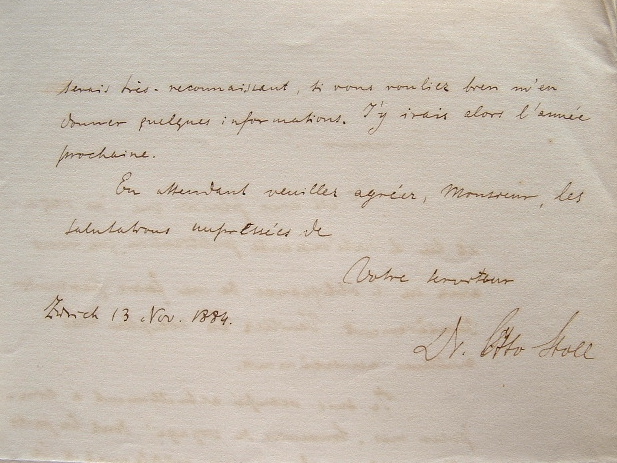 serais très-reconnaissant, si vous vouliez bien m'en
donner quelques informations. J'y irais alors l'année
prochaine.
En attendant veuillez agréer, Monsieur, les
salutations empressées de
Votre serviteur
Zürich 13 Nov. 1884.
Dr. Otto Stoll